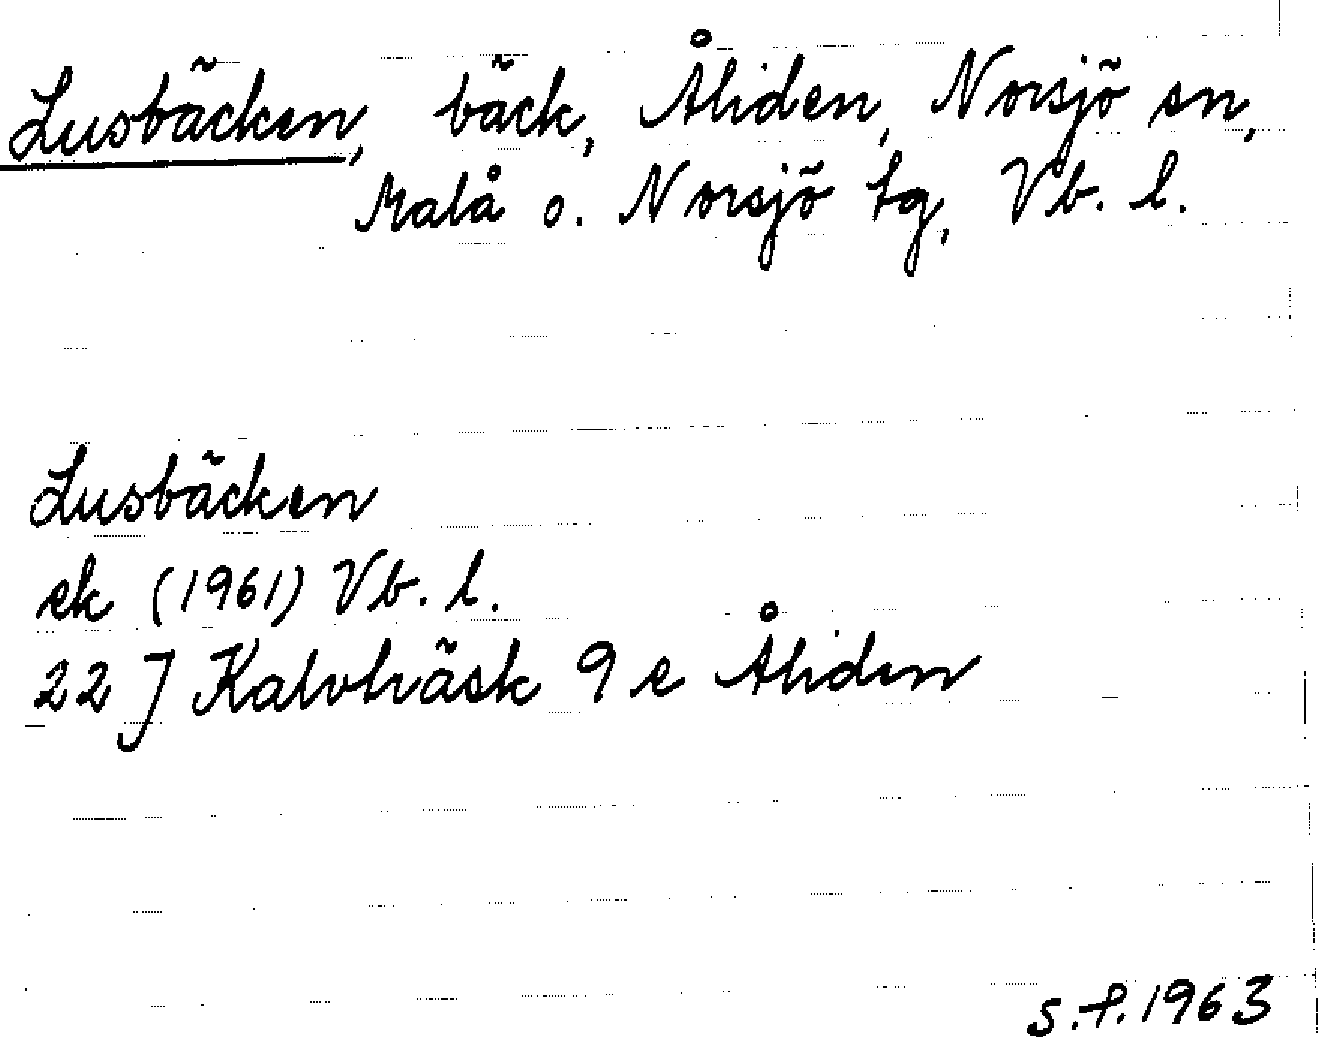 Lusbäcken, bäck, Åliden, Norsjö sn,
Malå o. Norsjö tg, Vb. l.
Lusbäcken
ek (1961) Vb. l.
22 J Kalvträsk 9 e Åliden
s.f. 1963